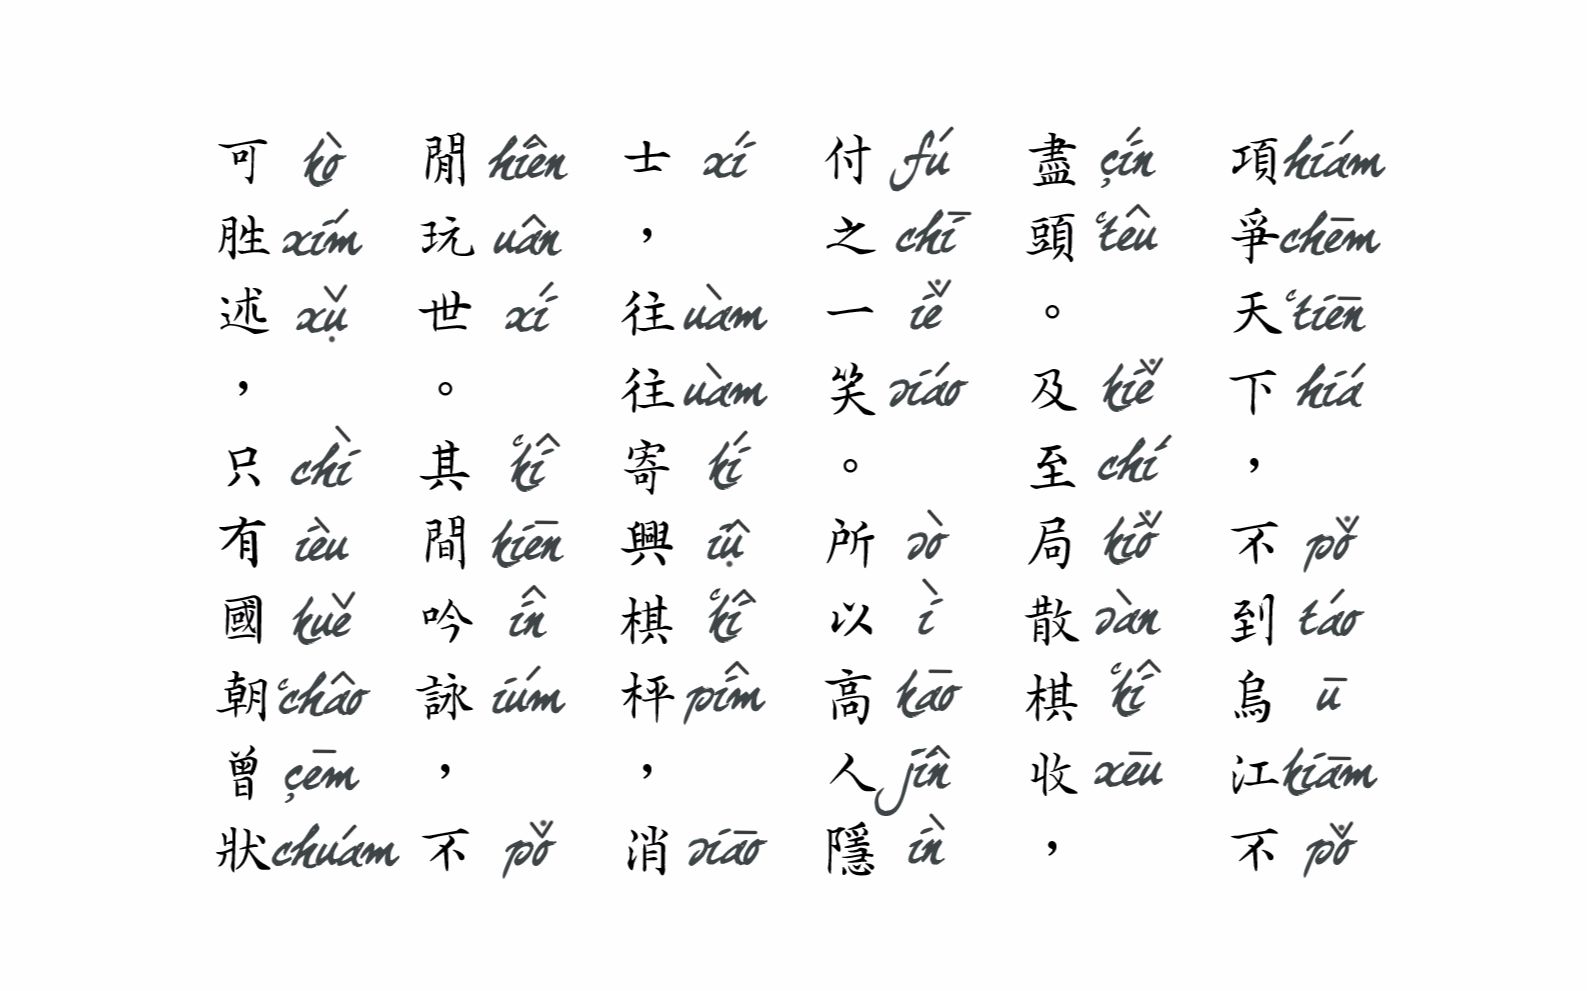 項 hiám 爭 chēm 天 ʿtiēn 下 hiá ， 不 pǒ̇ 到 táo 烏 ū 江 kiām 不 pǒ̇
盡 çín 頭 ʿtêu 。 及 kiě̇ 至 chí 局 kiǒ̇ 散 sàn 棋 ʿkî 收 xēu ，
付 fú 之 chī 一 iě̇ 笑 siáo 。 所 sò 以 ì 高 kāo 人 jîn 隱 ìn
士 xí ， 往 uàm 往 uàm 寄 kí 興 iụ̂ 棋 ʿkî 枰 pîm ， 消 siāo
閒 hiên 玩 uân 世 xí 。 其 ʿkî 間 kiēn 吟 în 詠 iúm ， 不 pǒ̇
可 kò 胜 xím 述 xụ̌ ， 只 chì 有 ièu 國 kuě 朝 ʿchâo 曾 çēm 狀 chuám